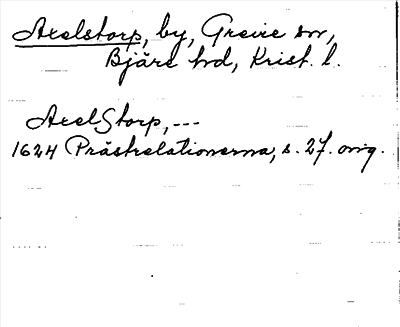 Axelstorp, by, Grevie sn,
Bjäre hd, Krist. l.
AxelStorp, ---
1624 Prästrelationerna, s. 27. orig.